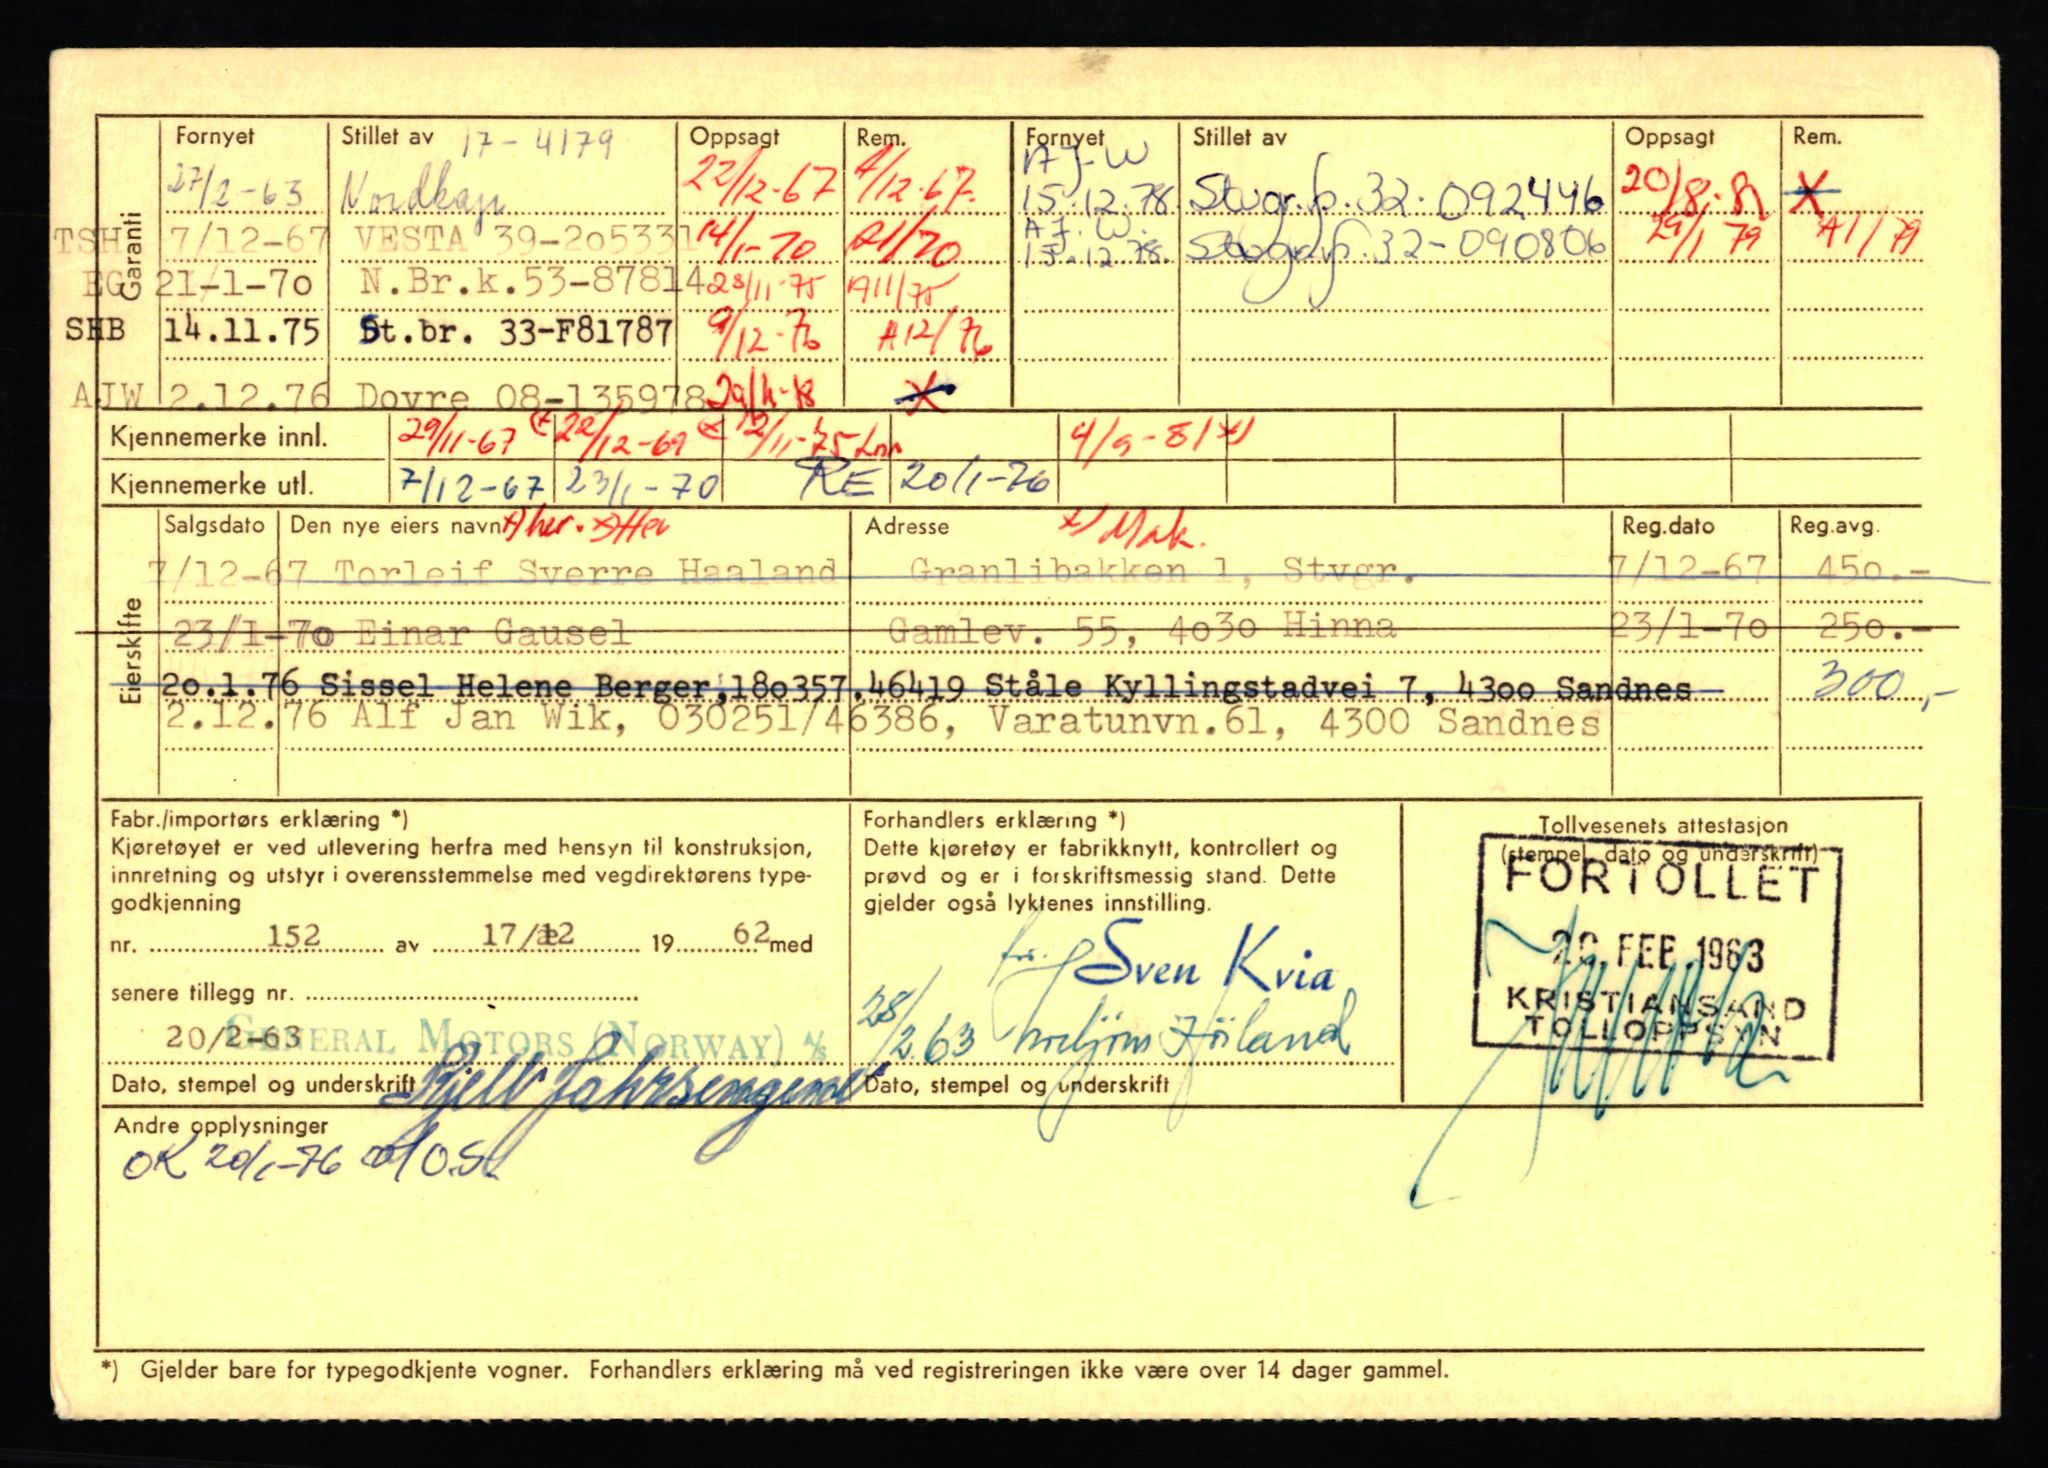 Fornyet Stillet av 17-4179 Oppsagt Rem. Fornyet Stillet av Oppsagt Rem.
Garanti
27/2-63 Nordkap 22/12-67 A/12-67. AJ-W 15.12.78. Stvgr.sp. 32-092446 20/8-81 X
TSH 7/12-67 VESTA 39-205331 14/1-70 A1/70 A.J.W. 15.12.78. 32-090806 29/1 79 A1/79
EG 21-1-70 N.Br.k.53-87814 28/11-75 A11/75
SHB 14.11.75 St.br. 33-F81787 9/12-76 A12/76
AJW 2.12.76 Dovre 08-135978 29/11-78 X
Kjennemerke innl. 29/11-67 22/12-69 12/11-75 4/9-81 x)
Kjennemerke utl. 7/12-67 23/1-70 RE 20/1-76
Eierskifte
Salgsdato Den nye eiers navn Adresse x) Mak. Reg.dato Reg.avg.
7/12-67 Torleif Sverre Haaland Granlibakken 1, Stvgr. 7/12-67 450.-
23/1-70 Einar Gausel Gamlev. 55, 4030 Hinna 23/1-70 250.-
20.1.76 Sissel Helene Berger,180357.46419 Ståle Kyllingstadvei 7, 4300 Sandnes 300,-
2.12.76 Alf Jan Wik, 030251/46386, Varatunvn.61, 4300 Sandnes
Fabr./importørs erklæring *)
Kjøretøyet er ved utlevering herfra med hensyn til konstruksjon,
innretning og utstyr i overensstemmelse med vegdirektørens type-
godkjenning
nr. 152 av 17/12 19 62 med
senere tillegg nr.
20/2-63 GENERAL MOTORS (NORWAY) A/S
Dato, stempel og underskrift
Forhandlers erklæring *)
Dette kjøretøy er fabrikknytt, kontrollert og
prøvd og er i forskriftsmessig stand. Dette
gjelder også lyktenes innstilling.
for. Sven Kvia
28/2 63
Dato, stempel og underskrift
Tollvesenets attestasjon
(stempel, dato og underskrift)
FORTOLLET
20. FEB. 1963
KRISTIANSAND
TOLLOPPSYN
Andre opplysninger
OK 20/1-76
*) Gjelder bare for typegodkjente vogner. Forhandlers erklæring må ved registreringen ikke være over 14 dager gammel.